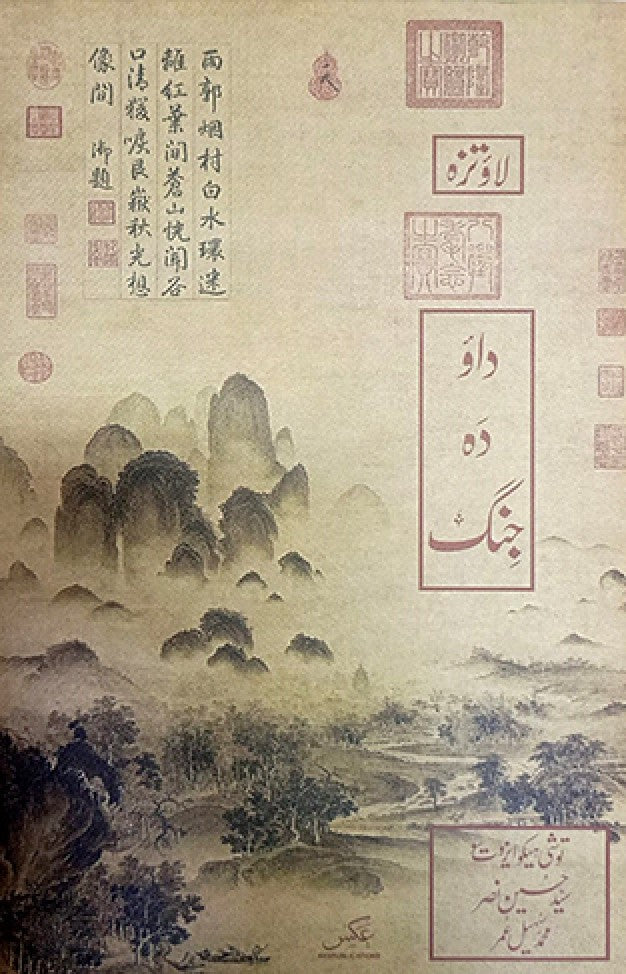 雨郭烟村白水環迷
離紅葉間蒼山恍聞谷
口清猨唳艮嶽秋光想
像間 御題
لاؤتزہ
داؤ
دَہ
جِنگ
توشی ہیکو ایزوتسو
سیّد حسین نصر
محمد سہیل عمر
عکس